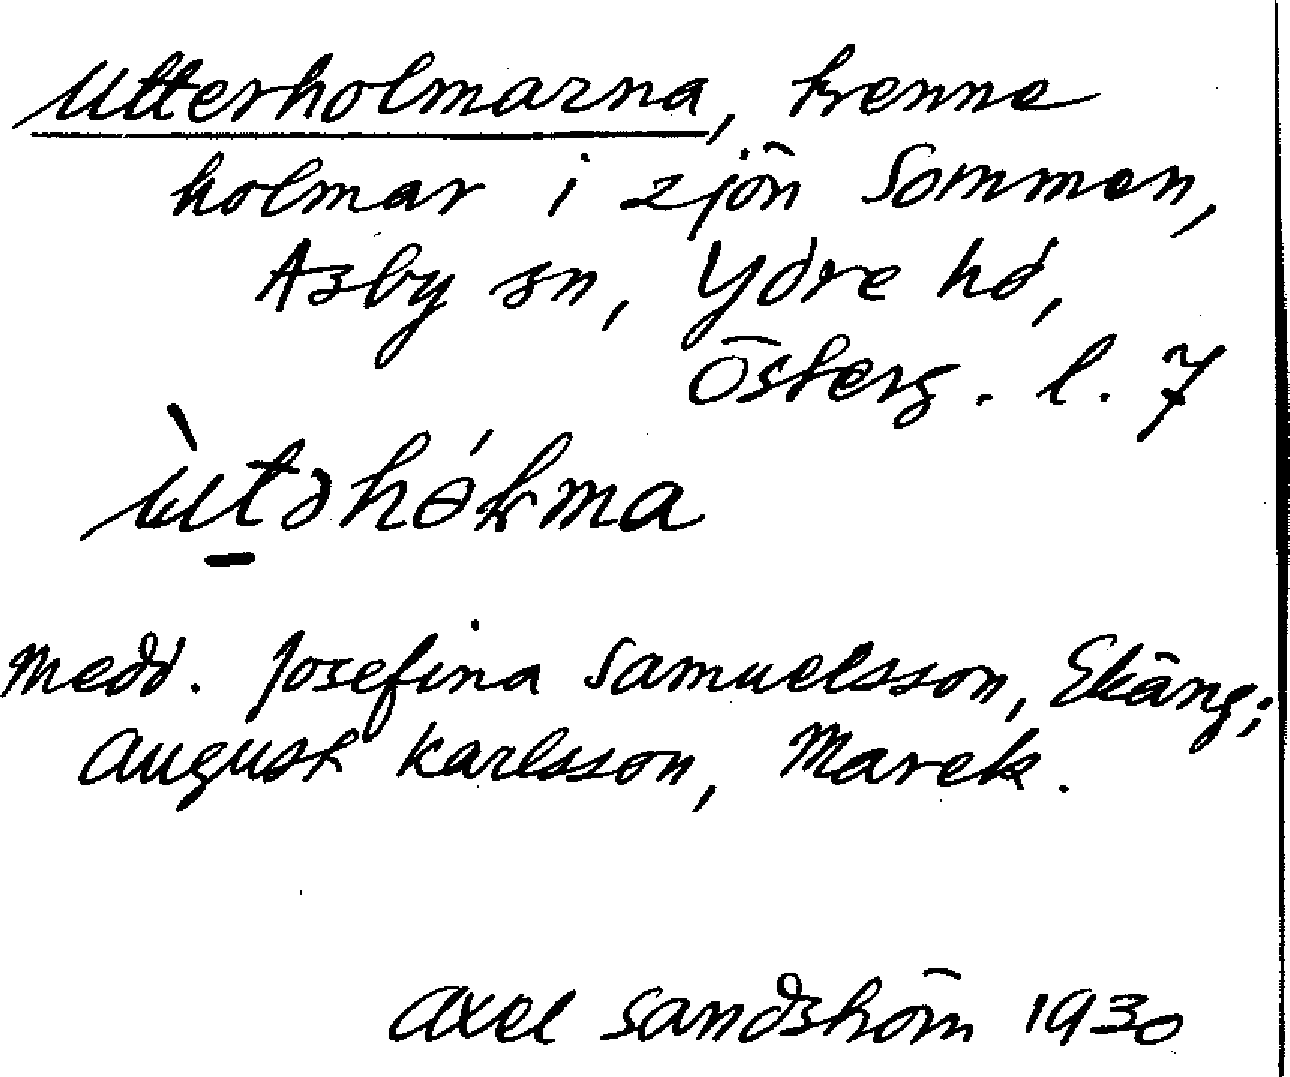 Utterholmarna, trenne
holmar i sjön Sommen,
Asby sn, Ydre hd,
Österg. l. 7
ùtəhóɫma
Medd. Josefina Samuelsson, Ekäng;
August Karlsson, Marek.
Axel Sandström 1930